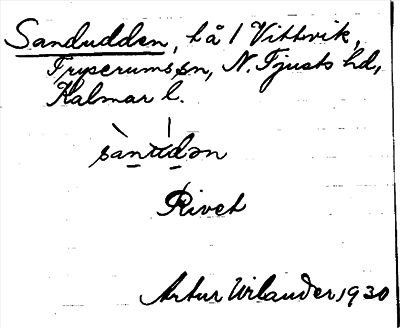 Sandudden, lå 1 Vittvik,
Tryserums sn, N. Tjusts hd,
Kalmar l.
sànúdən
Rivet
Artur Urlander 1930